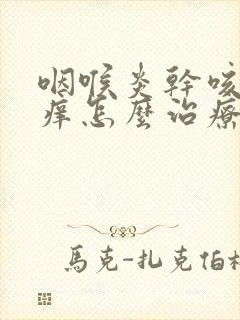 咽喉炎幹咳
痒怎麼治療
馬克-扎克伯格